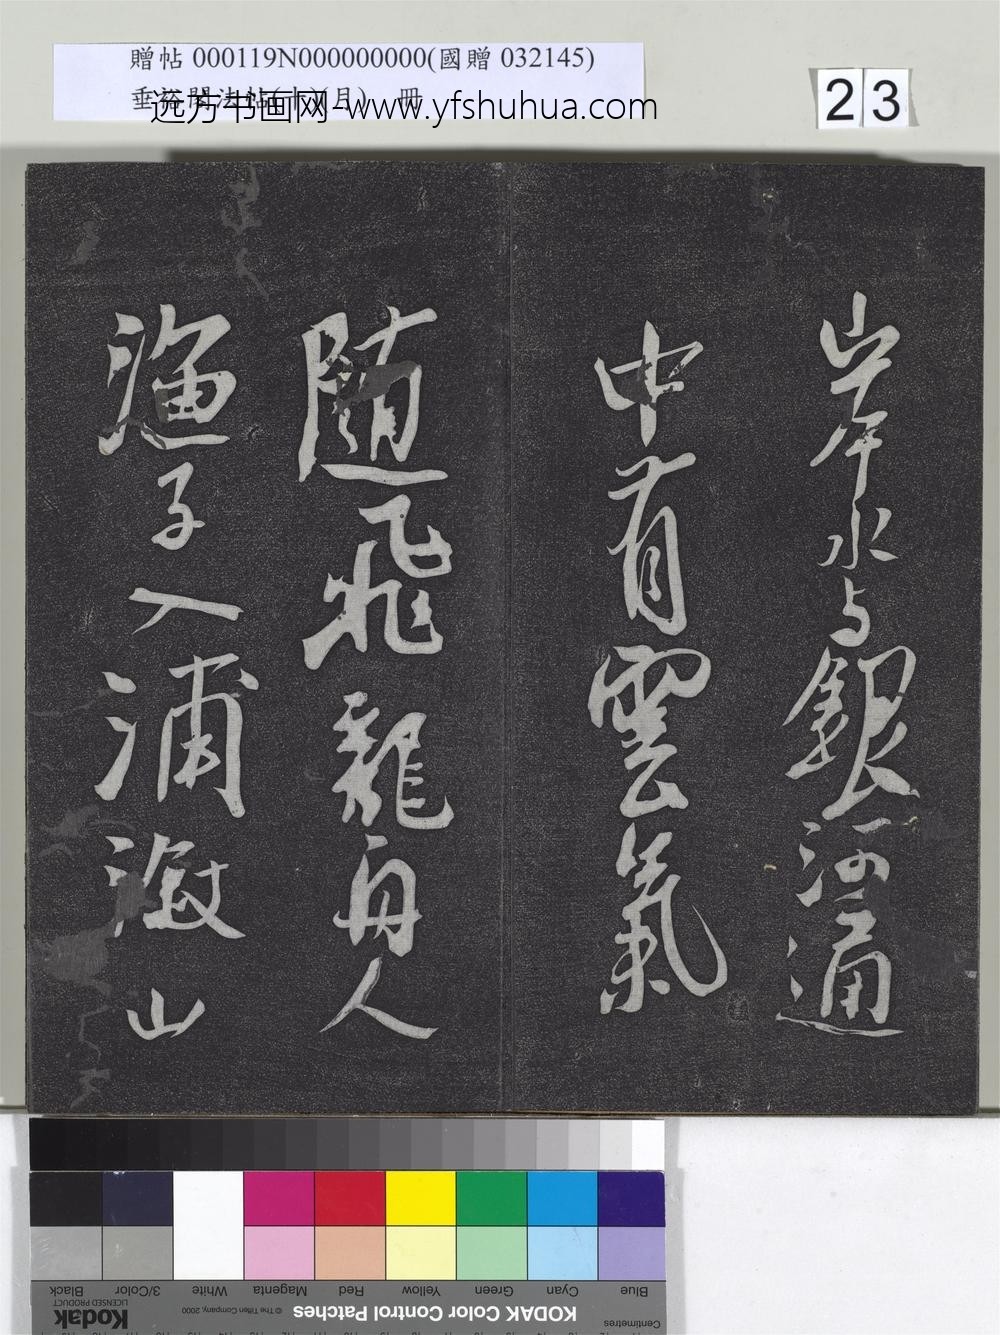 贈帖 000119N000000000(國贈 032145)
远方书画网-www.yfshuhua.com
23
岸水与銀河通
中有雲氣
随飛龍舟人
漁子入浦漵山
Blue Cyan Green Yellow Red Magenta White 3/Color Black
Centimetres
KODAK Color Control Patches
© The Tiffen Company, 2000
Kodak
LICENSED PRODUCT